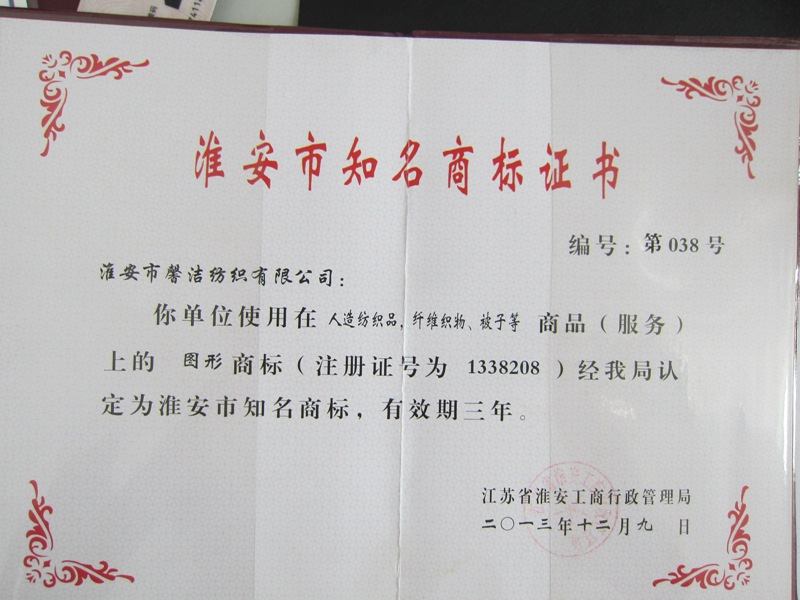 淮安市知名商标证书
编号：第038号
淮安市馨洁纺织有限公司：
你单位使用在 人造纺织品，纤维织物、被子等 商品（服务）
上的 图形 商标（注册证号为 1338208 ）经我局认
定为淮安市知名商标，有效期三年。
江苏省淮安工商行政管理局
二〇一三年十二月九 日